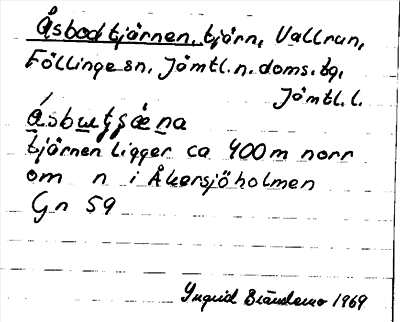 Åsbodtjärnen, tjärn, Vallrun,
Föllinge sn, Jämtl. n. doms. tg,
Jämtl. l.
tjärnen ligger ca 400 m norr
om n i Åkersjöholmen
Gn 59
Yngvid Brändemo 1969